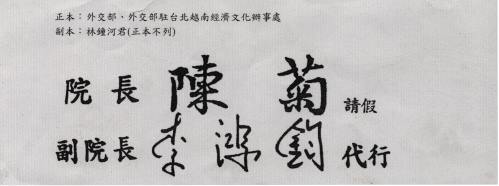 正本：外交部、外交部駐台北越南經濟文化辦事處
副本：林鐘河君(正本不列)
院長 陳菊 請假
副院長 李鴻鈞 代行